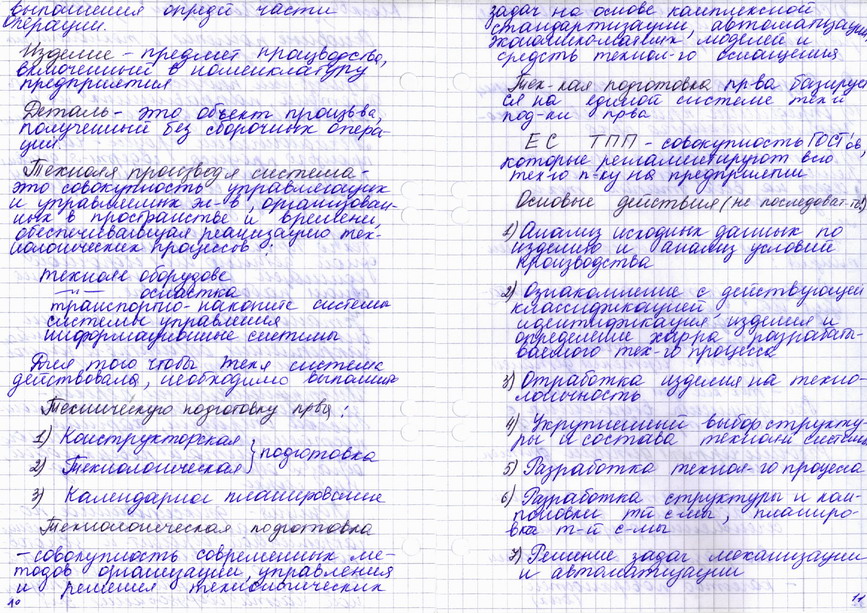 выполнения опред части
операции.
Изделие - предмет производства,
включенный в номенклатуру
предприятия
Деталь - это объект произв-ва,
полученный без сборочных опера-
ций
Технол-я производ-я система -
это совокупность управляющих
и управляемых эл-в, организован-
ных в пространстве и времени,
обеспечивающая реализацию тех-
нологических процессов :
технол-е оборудов-е
—"— оснастка
транспортно- накопит-е системы
системы управления
информационные системы
Для того чтобы техн система
действовала, необходимо выполнить
Техническую подготовку пр-ва :
1) Конструкторская
2) Технологическая } подготовка
3) Календарное планирование
Технологическая подготовка
- совокупность современных ме-
тодов организации, управления
и решения технологических
10
задач на основе комплексной
стандартизации, автоматизации
экономико-мат-х моделей и
средств технол-го оснащения
Тех-кая подготовка пр-ва базирует
ся на единой системе тех-й
под-ки пр-ва
ЕС ТПП - совокупность ГОСТ'ов,
которые регламентируют всю
тех-ю п-ку на предприятии
Основные действия (не последоват-ть!)
1) Анализ исходных данных по
изделию и анализ условий
производства
2) Ознакомление с действующей
классификацией,
идентификация изделия и
определение хар-ра разрабаты-
ваемого тех-го процесса
3) Отработка изделия на техно-
логичность
4) Укрупненный выбор структу-
ры и состава технолог системы
5) Разработка технол-го процесса
6) Разработка структуры и ком-
поновки т-й с-мы, планиро-
вка т-й с-мы
7) Решение задач механизации
и автоматизации
11